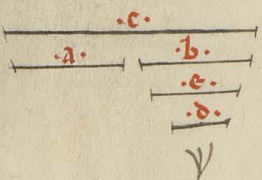 ·c·
·a· ·b·
·e·
·d·